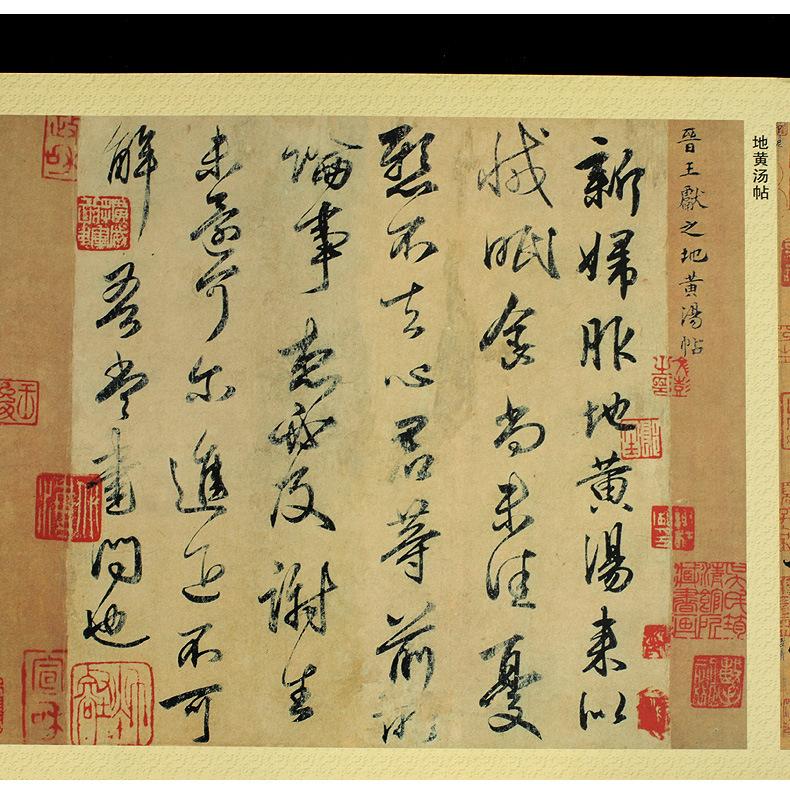 地黄汤帖
晉王獻之地黄湯帖
新婦服地黄湯来似
減眠食尚未佳憂
懸不去心君等前所
論事想必及謝生
未還何尔進退不可
解吾當書問也
政和
宣和